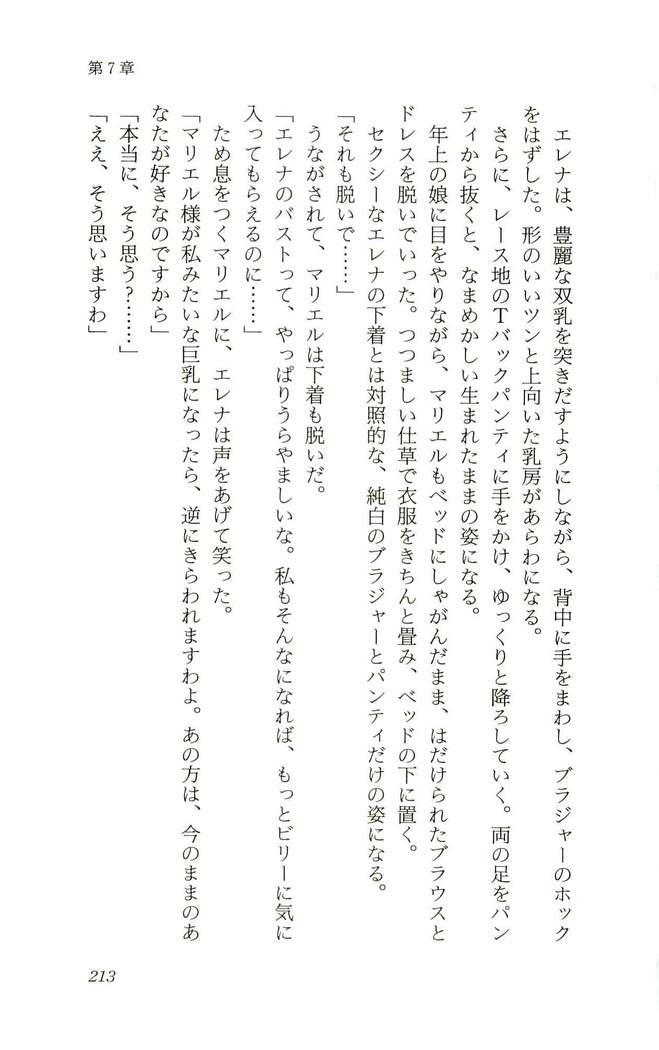 第7章
エレナは、豊麗な双乳を突きだすようにしながら、背中に手をまわし、ブラジャーのホック
をはずした。形のいいツンと上向いた乳房があらわになる。
さらに、レース地のTバックパンティに手をかけ、ゆっくりと降ろしていく。両の足をパン
ティから抜くと、なまめかしい生まれたままの姿になる。
年上の娘に目をやりながら、マリエルもベッドにしゃがんだまま、はだけられたブラウスと
ドレスを脱いでいった。つつましい仕草で衣服をきちんと畳み、ベッドの下に置く。
セクシーなエレナの下着とは対照的な、純白のブラジャーとパンティだけの姿になる。
「それも脱いで……」
うながされて、マリエルは下着も脱いだ。
「エレナのバストって、やっぱりうらやましいな。私もそんなになれば、もっとビリーに気に
入ってもらえるのに……」
ため息をつくマリエルに、エレナは声をあげて笑った。
「マリエル様が私みたいな巨乳になったら、逆にきらわれますわよ。あの方は、今のままのあ
なたが好きなのですから」
「本当に、そう思う?……」
「ええ、そう思いますわ」
213